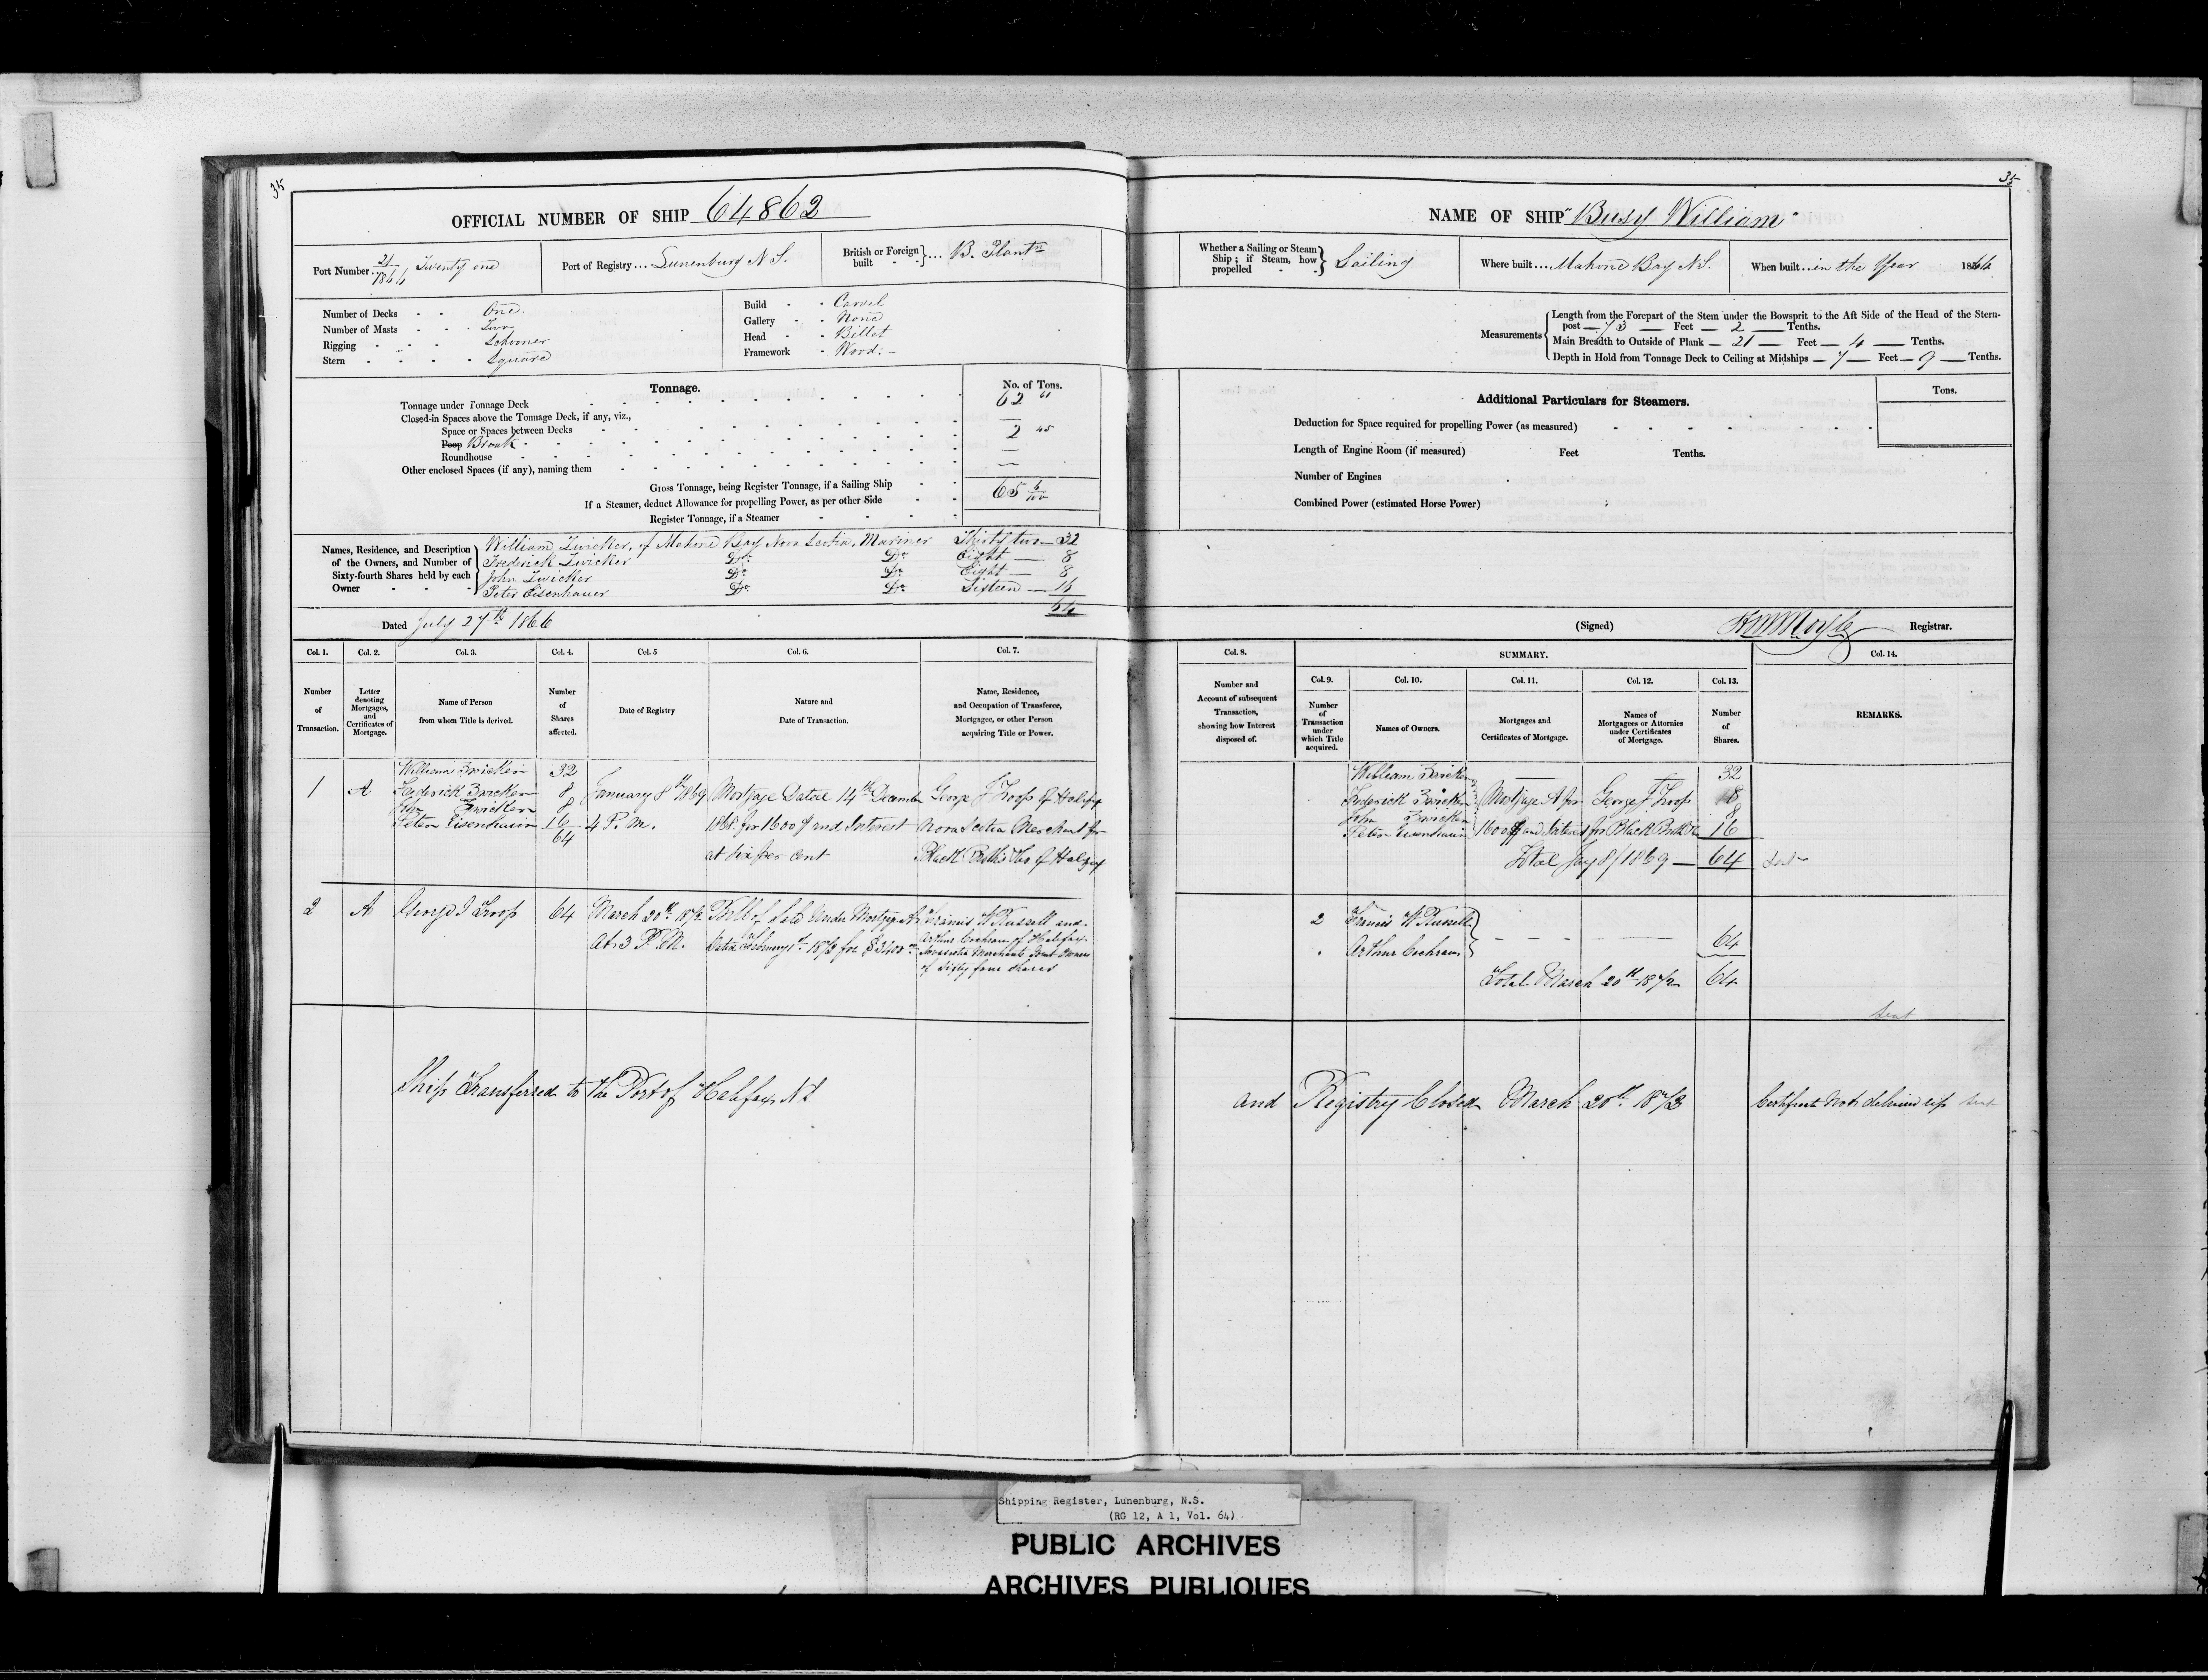 35
OFFICIAL NUMBER OF SHIP 64862
Port Number 21/1866 Twenty one
Port of Registry... Lunenburg N S.
British or Foreign built - - } ... B. Plantn
Number of Decks - - One
Number of Masts - - - Two
Rigging - - - - Schooner
Stern - - - - - Square
Build - - Carvel
Gallery - - None
Head - - Billet
Framework - Wood:-
Tonnage.
No. of Tons.
Tonnage under Tonnage Deck 62 61
Closed-in Spaces above the Tonnage Deck, if any, viz.,
Space or Spaces between Decks —
Poop Break 2 45
Roundhouse —
Other enclosed Spaces (if any), naming them —
Gross Tonnage, being Register Tonnage, if a Sailing Ship 65 6/100
If a Steamer, deduct Allowance for propelling Power, as per other Side
Register Tonnage, if a Steamer
Names, Residence, and Description of the Owners, and Number of Sixty-fourth Shares held by each Owner - - -
William Zwicker, of Mahone Bay Nova Scotia, Mariner Thirty two — 32
Frederick Zwicker Do. Do. Eight — 8
John Zwicker Do. Do. Eight — 8
Peter Eisenhauer Do. Do. Sixteen — 16
64
Dated July 27th 1866
Col. 1. Col. 2. Col. 3. Col. 4. Col. 5 Col. 6. Col. 7.
Number of Transaction.
Letter denoting Mortgages, and Certificates of Mortgage.
Name of Person from whom Title is derived.
Number of Shares affected.
Date of Registry
Nature and Date of Transaction.
Name, Residence, and Occupation of Transferee, Mortgagee, or other Person acquiring Title or Power.
1 A
William Zwicker 32
Frederick Zwicker 8
John Zwicker 8
Peter Eisenhauer 16
64
January 8th 1869
4 P. M.
Mortgage Dated 14th December
1868 for 1600 $ and Interest
at six per cent
George J Troop of Halifax
Nova Scotia Merchant for
Black Brothers & Co of Halifax
2 A George J Troop 64
March 20th 1872
At 3 P. M.
Bill of Sale Under Mortgage A
Dated February 1st 1872 for $2400
Francis W Russell and
Arthur Cochran of Halifax
Nova Scotia Merchants Joint Owners
of Sixty four shares
Ship Transferred to the Port of Halifax N S
35
NAME OF SHIP "Busy William"
Whether a Sailing or Steam Ship; if Steam, how propelled - - } Sailing
Where built.... Mahone Bay N S.
When built... in the Year 1866
Measurements
Length from the Forepart of the Stem under the Bowsprit to the Aft Side of the Head of the Stern-
post — 73 — Feet — 2 — Tenths.
Main Breadth to Outside of Plank — 21 — Feet — 4 — Tenths.
Depth in Hold from Tonnage Deck to Ceiling at Midships — 7 — Feet — 9 — Tenths.
Additional Particulars for Steamers.
Tons.
Deduction for Space required for propelling Power (as measured)
Length of Engine Room (if measured) Feet Tenths.
Number of Engines
Combined Power (estimated Horse Power)
(Signed) Registrar.
Col. 8. SUMMARY. Col. 14.
Col. 9. Col. 10. Col. 11. Col. 12. Col. 13.
Number and Account of subsequent Transaction, showing how Interest disposed of.
Number of Transaction under which Title acquired.
Names of Owners.
Mortgages and Certificates of Mortgage.
Names of Mortgagees or Attornies under Certificates of Mortgage.
Number of Shares.
REMARKS.
William Zwicker — 32
Frederick Zwicker Mortgage A for George J Troop 8
John Zwicker 8
Peter Eisenhauer 1600 $ and Interest for Black Broths & Co 16
Total Jay 8/1869 — 64 Sent
2 Francis W Russell
Arthur Cochran 64
Total March 20th 1872 64
Sent
and Registry Closed March 20th 1872 Certificate Not delivered up Sent
Shipping Register, Lunenburg, N.S.
(RG 12, A 1, Vol. 64)
PUBLIC ARCHIVES
ARCHIVES PUBLIQUES